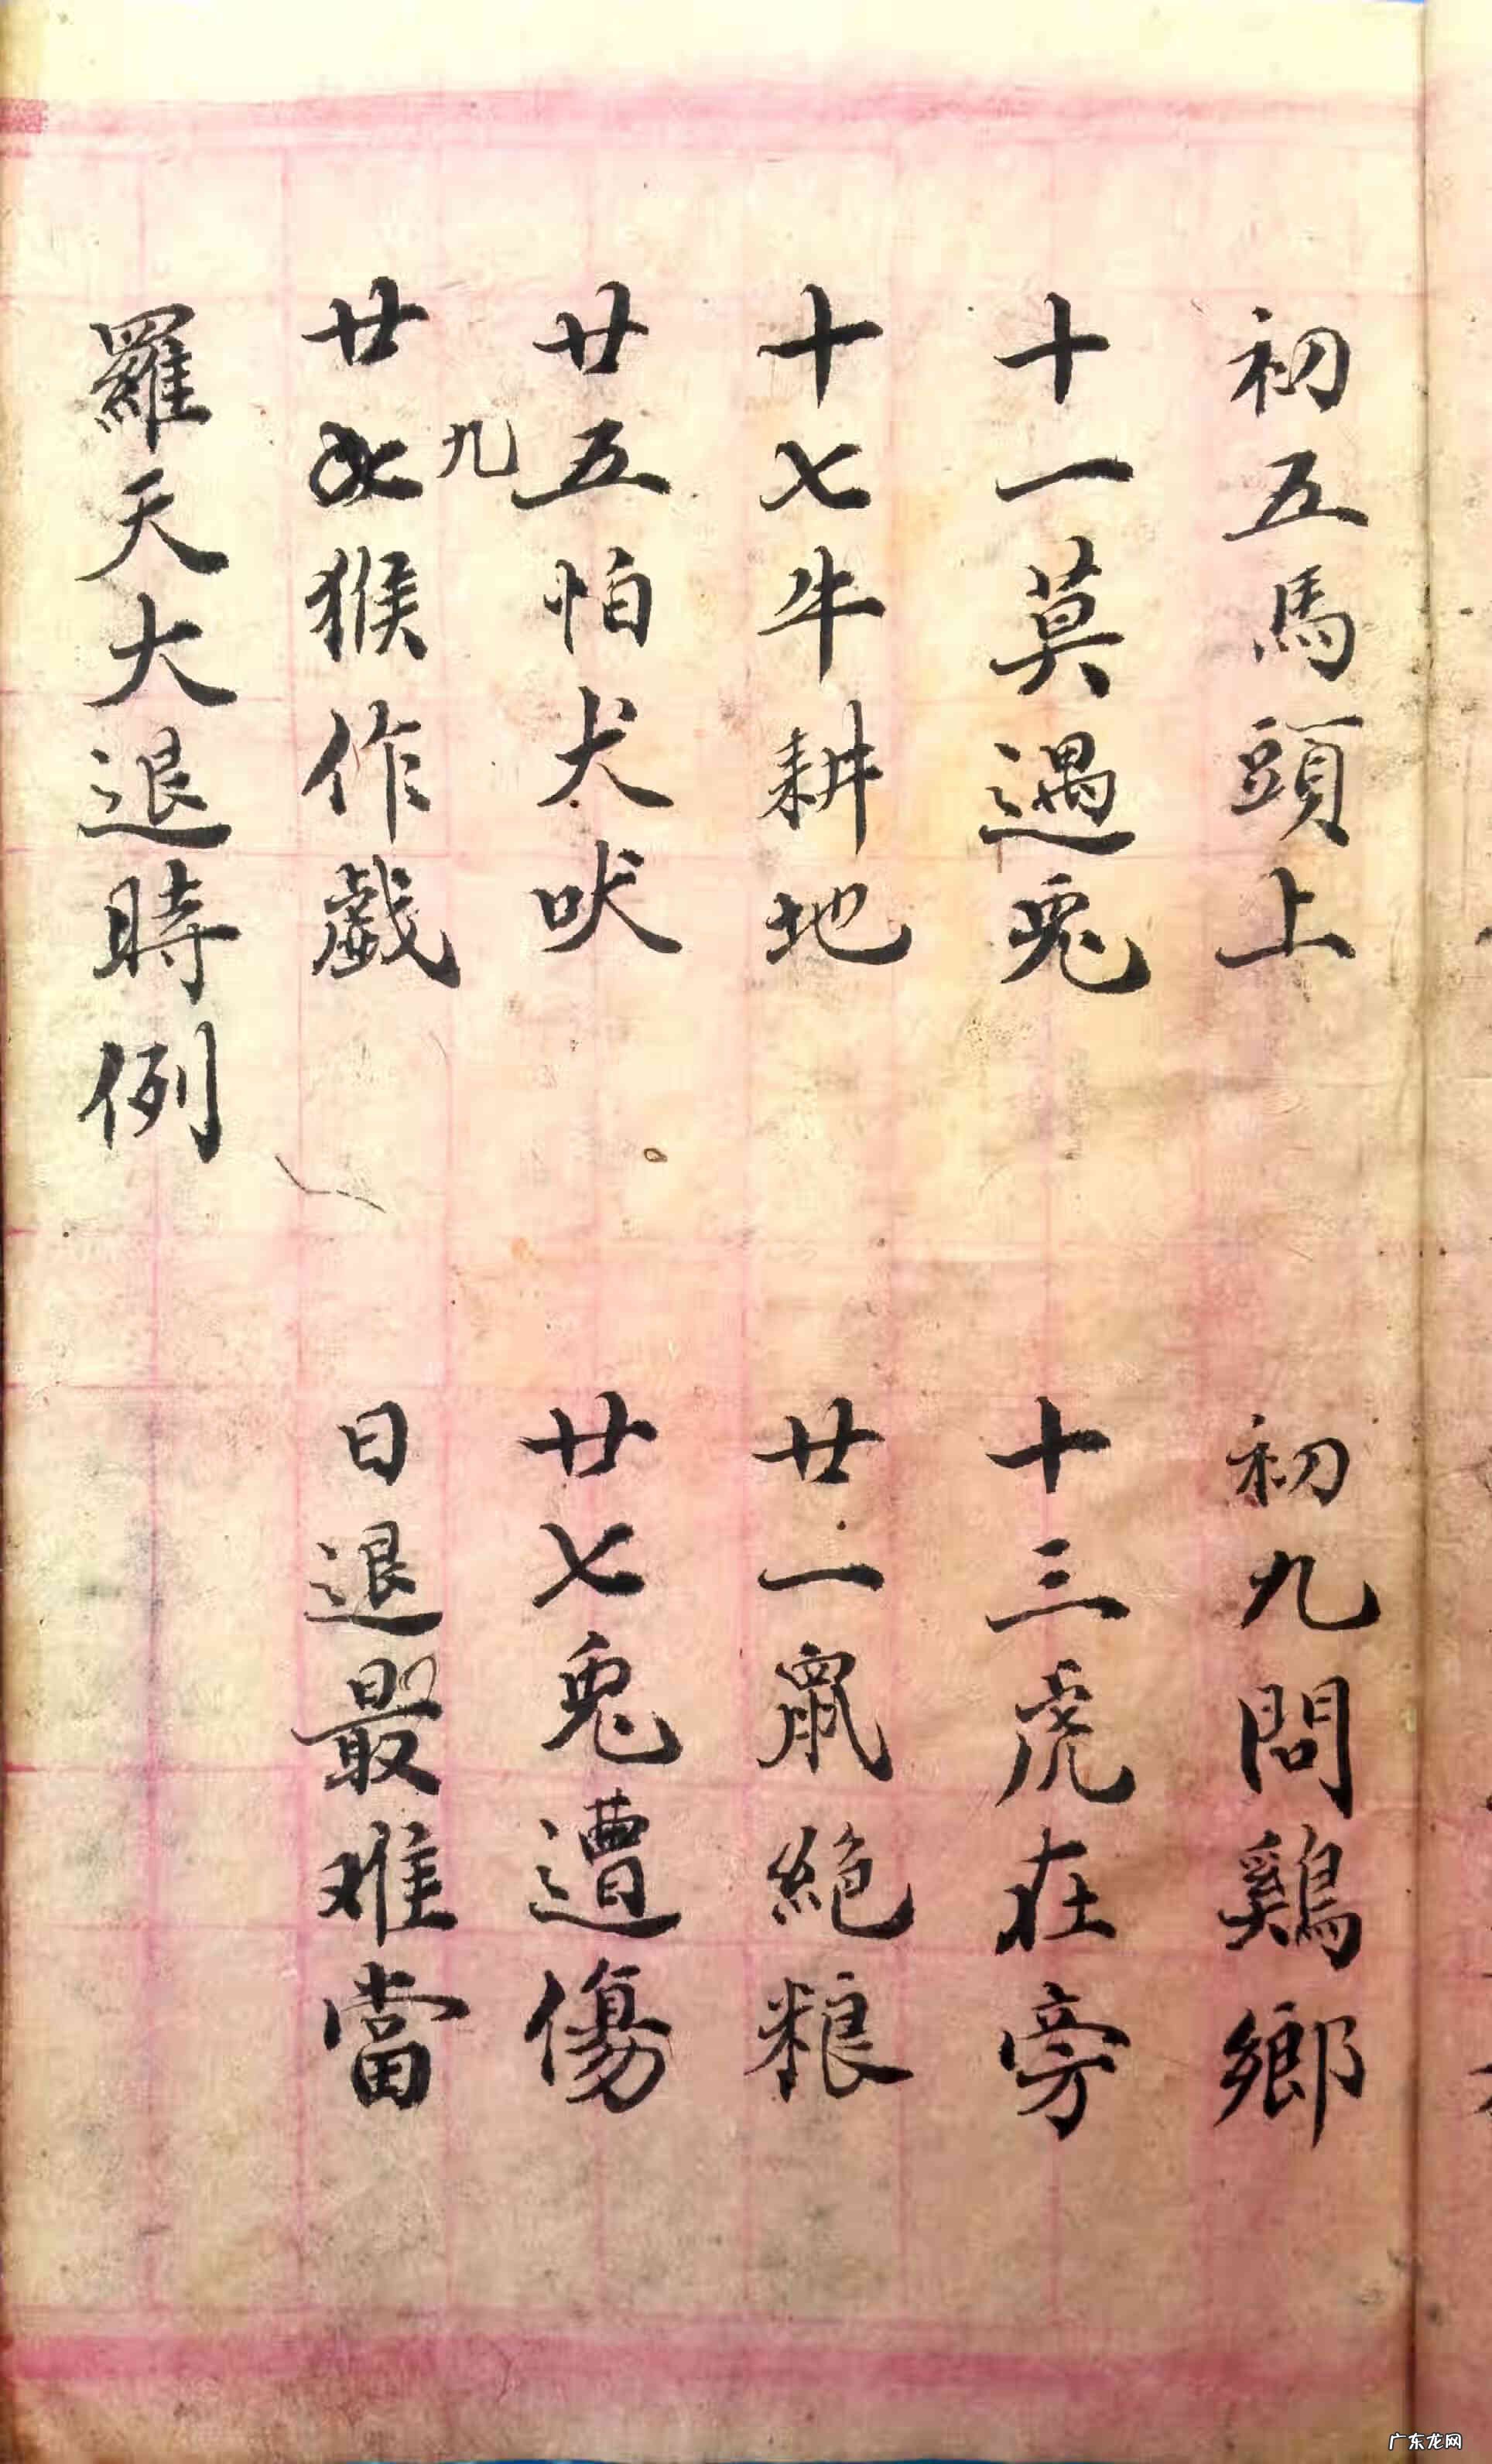 初五馬頭上　初九問鷄鄉
十一莫遇兎　十三虎在旁
十七牛耕地　廿一䑕絕粮
廿五怕犬吠　廿七兎遭傷
廿九猴作戯　日退最难當
羅天大退時例
广东龙网